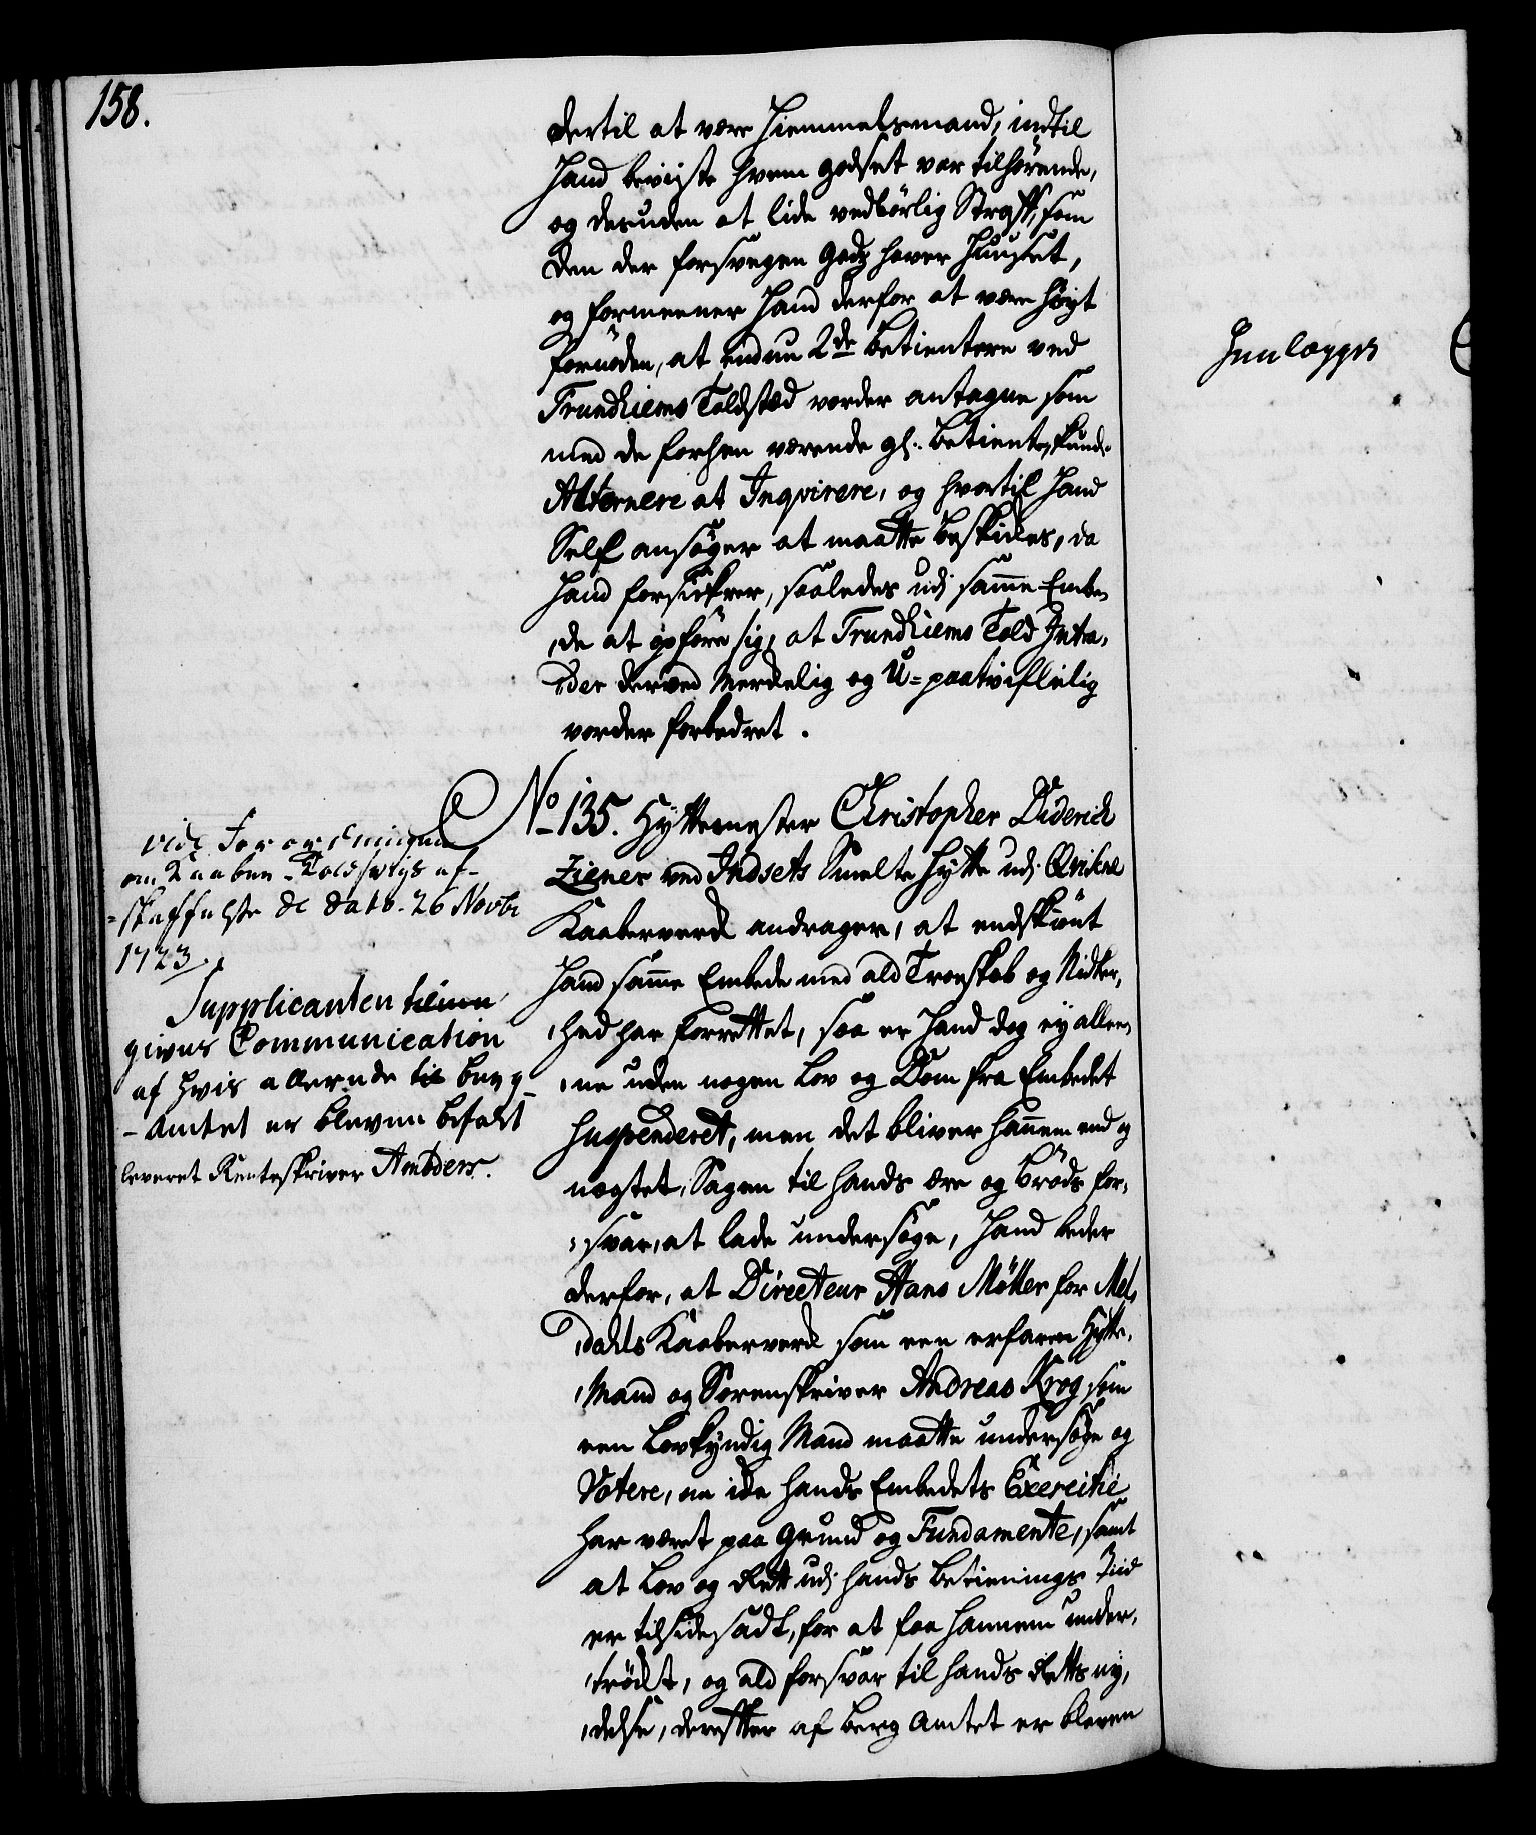 158.
dertil at være Hiemmelsmand, indtil
Hand beviiste hvem godset var tilhørende,
og desuden at lide vedbørlig Straff, som
den der forsvegen Godz haver Huuset,
og formeener Hand derfor at være høyt
fornøden, at endnu 2de betientere ved
Trundhiems Toldstæd vorder antagne som
med de forhen værende gl. betiente kunde
Alternere at Inqvirere, og hvortil Hand
Self ansøger at maatte beskikkes, da
Hand forsikrer, saaledes udj samme Embe,
,de at opføre sig, at Trundhiems Told Intra,
,der derved Merkelig og U=paatvifflelig
vorder forbedret.
No 135. Hyttemester Christopher Diderich
Ziener ved Indsets Smelte Hytte udj Qvikne
Kaaberverk andrager, at endskiønt
Hand samme Embede med ald Troeskab og Nidker,
,hed har forrettet, saa er Hand dog ey alle,
,ne uden nogen Lov og Dom fra Embedet
suspenderet, men det bliver hannem end og
nægtet, Sagen til hands ære og brøds for,
,svar, at lade undersøge, Hand beder
derfor, at Directeur Hans Möller for Mel,
,dahls Kaaberverk som een erfaren Hytte,
,Mand og Sorenskriver Andreas Krog som
een Lovkyndig Mand maatte undersøge og
Votere, om icke hands Embedets Exercitie
har været paa grund og Fundamente, samt
at Lov og Rett udj hands betienings Tiid
er tilside sadt, for at faa hannem under,
,trøkt, og ald forsvar til hands Retts ny,
,delse, derefter af Berg Amtet er bleven
vide Forordningen
om Kaaber Toldswigs af-
-skaffelse de dato. 26 Novbr
1723.
Supplicanten
gives Communication
af hvis allerede til berg-
-Amtet er bleven befalet
leveret Renteskriver Ambders.
Henlægges